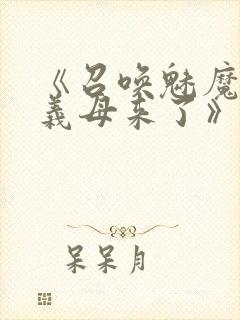 《召唤魅魔
义母来了》
呆呆月